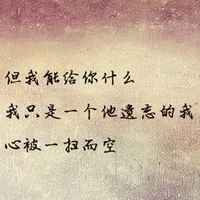 但我能给你什么
我只是一个他遗忘的我
心被一扫而空